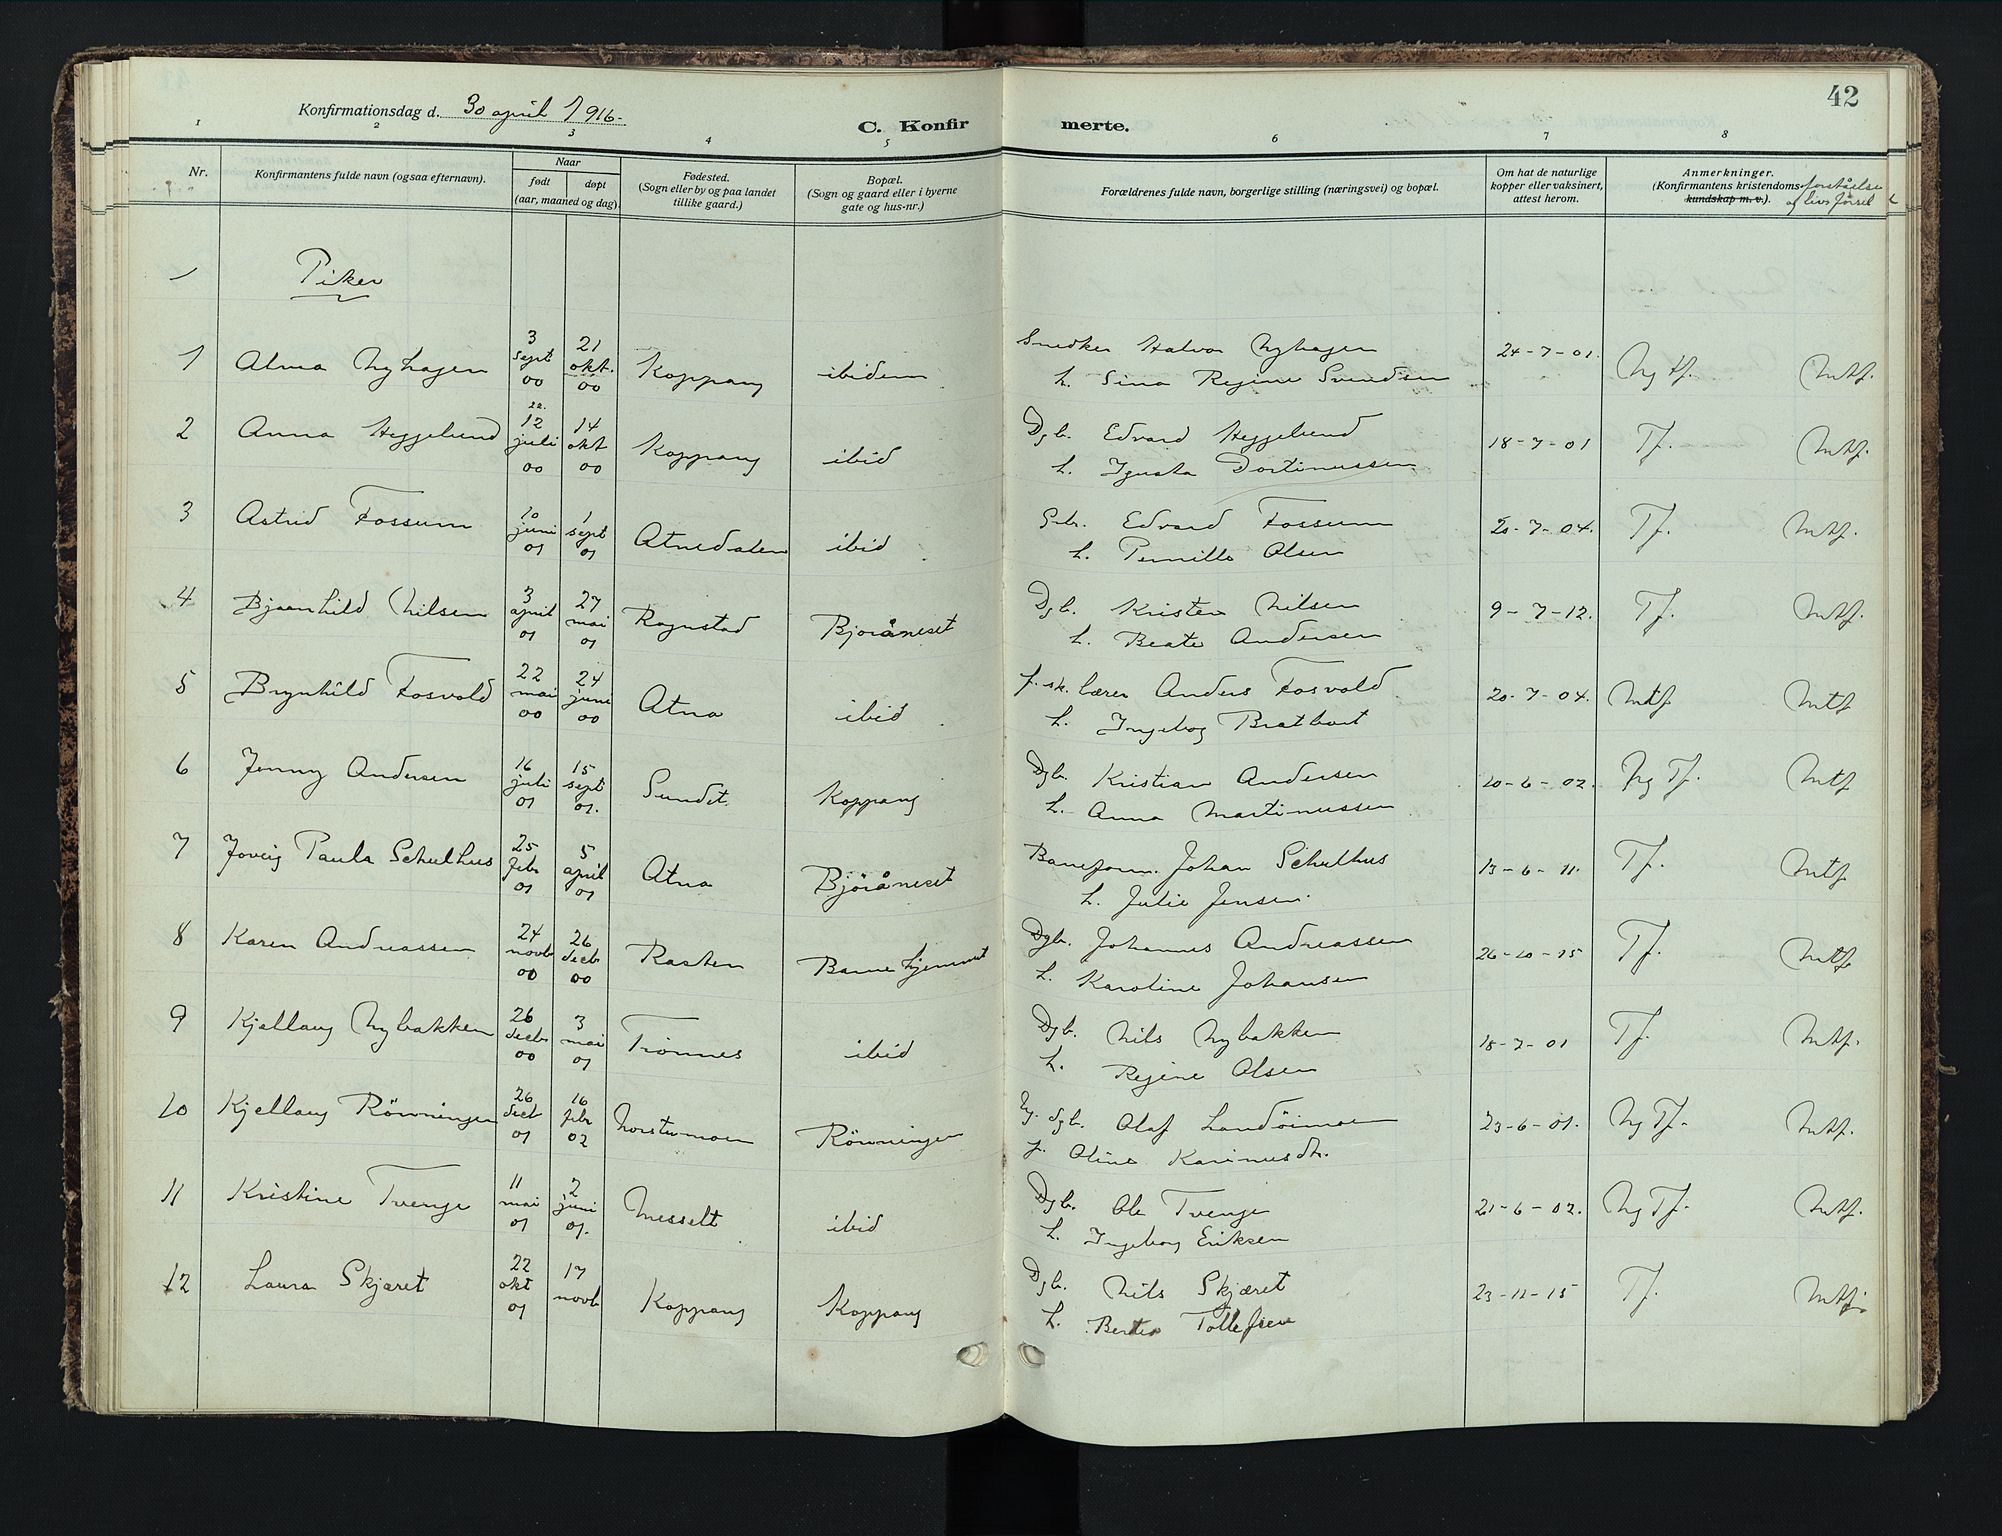 42
Konfirmationsdag d. 30 april 1916.
C. Konfirmerte.
1 2 3 4 5 6 7 8
Nr.
Konfirmantens fulde navn (ogsaa efternavn).
Naar
født døpt
(aar, maaned og dag).
Fødested.
(Sogn eller by og paa landet
tillike gaard.)
Bopæl.
(Sogn og gaard eller i byerne
gate og hus-nr.)
Forældrenes fulde navn, borgerlige stilling (næringsvei) og bopæl.
Om hat de naturlige
kopper eller vaksinert,
attest herom.
Anmerkninger.
(Konfirmantens kristendoms forståelse
kundskap m. v.). af livsførsel
Piker
1 Alma Nyhagen 3 sept 00 21 okt. 00 Koppang ibidem Snedker Halvor Nyhagen 24-7-01. Ng tf. Mtf.
h. Sina Regine Svendsen
2 Anna Heggelund 22. 12 juli 00 14 okt 00 Koppang ibid Dgb. Edvard Heggelund 18-7-01 Tf. Mtf.
h. Dortinussen
3 Astrid Fossum 10 juni 01 1 sept 01 Atnedalen ibid Gbr. Edvard Fossum 20-7-04. Tf. Mtf.
h. Pernille Olsen
4 Bjaanhild Nilsen 3 april 01 27 mai 01 Rognstad Bjøråneset Dgb. Kristen Nilsen 9-7-12. Tf. Mtf.
h. Beate Andersen
5 Brynhild Fosvold 22 mai 00 24 juni 00 Atna ibid f. sk. lærer Anders Fosvold 20-7-04. Mtf Mtf
h. Ingeborg Bratbart
6 Jenny Andersen 16 juli 01 15 sept 01. Sundet Koppang Dgb. Kristian Andersen 20-6-02. Ng Tf. Mtf
h. Anna Martinussen
7 Joveig Paula Schulhus 25 febr 01 5 april 01 Atna Bjøråneset Baneform. Johan Schulhus 13-6-11. Tf. Mtf
h. Julie Jensen
8 Karen Andreassen 24 novb 00 26 decb 00 Rasten Barnehjemmet Dgb. Johannes Andreassen 26-10-15 Tf. Mtf
h. Karoline Johansen
9 Kjellaug Nybakken 26 decb 00 3 mai 01 Trønnes ibid Dgb. Nils Nybakken 18-7-01 Tf. Mtf.
h. Regine Olsen
10 Kjellaug Rönningen 26 decb 01 16 febr 02 Norstumoen Rönningen Ug. dgb. Olaf Landöimoen 23-6-01. Ng Tf. Mtf.
p. Oline Karinusdtr.
11 Kristine Tvenge 11 mai 01 2 juni 01. Messelt ibid Dgb. Ole Tvenge 21-6-02. Ng Tf. Mtf.
h. Ingeborg Eriksen
12 Laura Skjæret 22 okt 01 17 novb Koppang Koppang Dgb. Nils Skjæret 23-11-15 Tf. Mtf.
h. Bertea Tollefsen